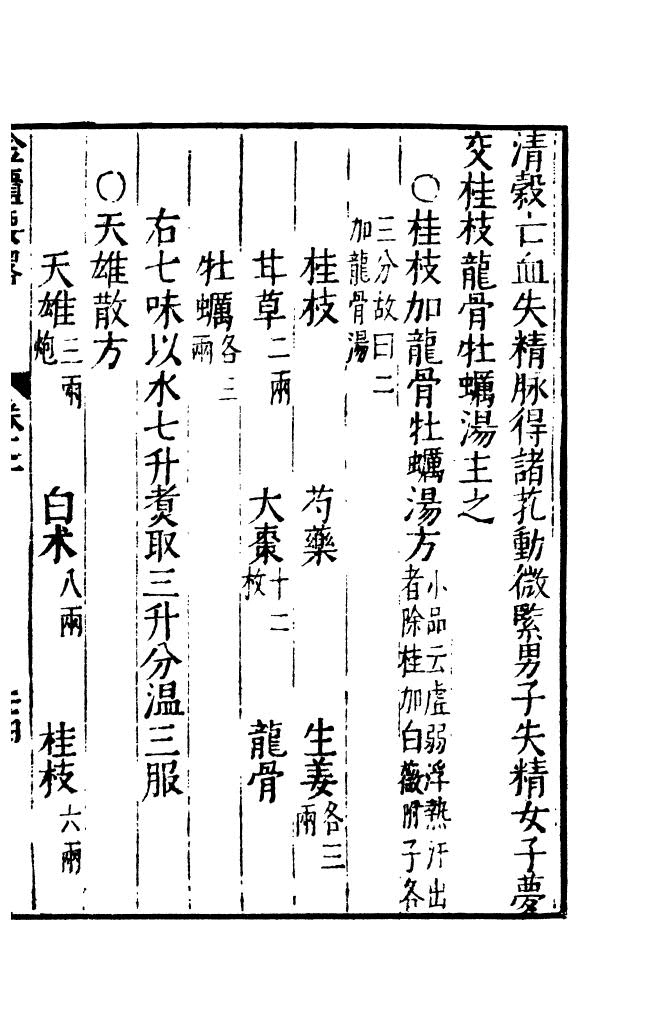 清穀亡血失精脉得諸芤動微緊男子失精女子夢
交桂枝龍骨牡蠣湯主之
○桂枝加龍骨牡蠣湯方小品云虛弱浮熱汗出者除桂加白薇附子各
三分故曰二加龍骨湯
桂枝 芍藥 生姜各三兩
甘草二兩 大棗十二枚 龍骨
牡蠣各三兩
右七味以水七升煑取三升分温三服
○天雄散方
天雄三兩炮 白术八兩 桂枝六兩